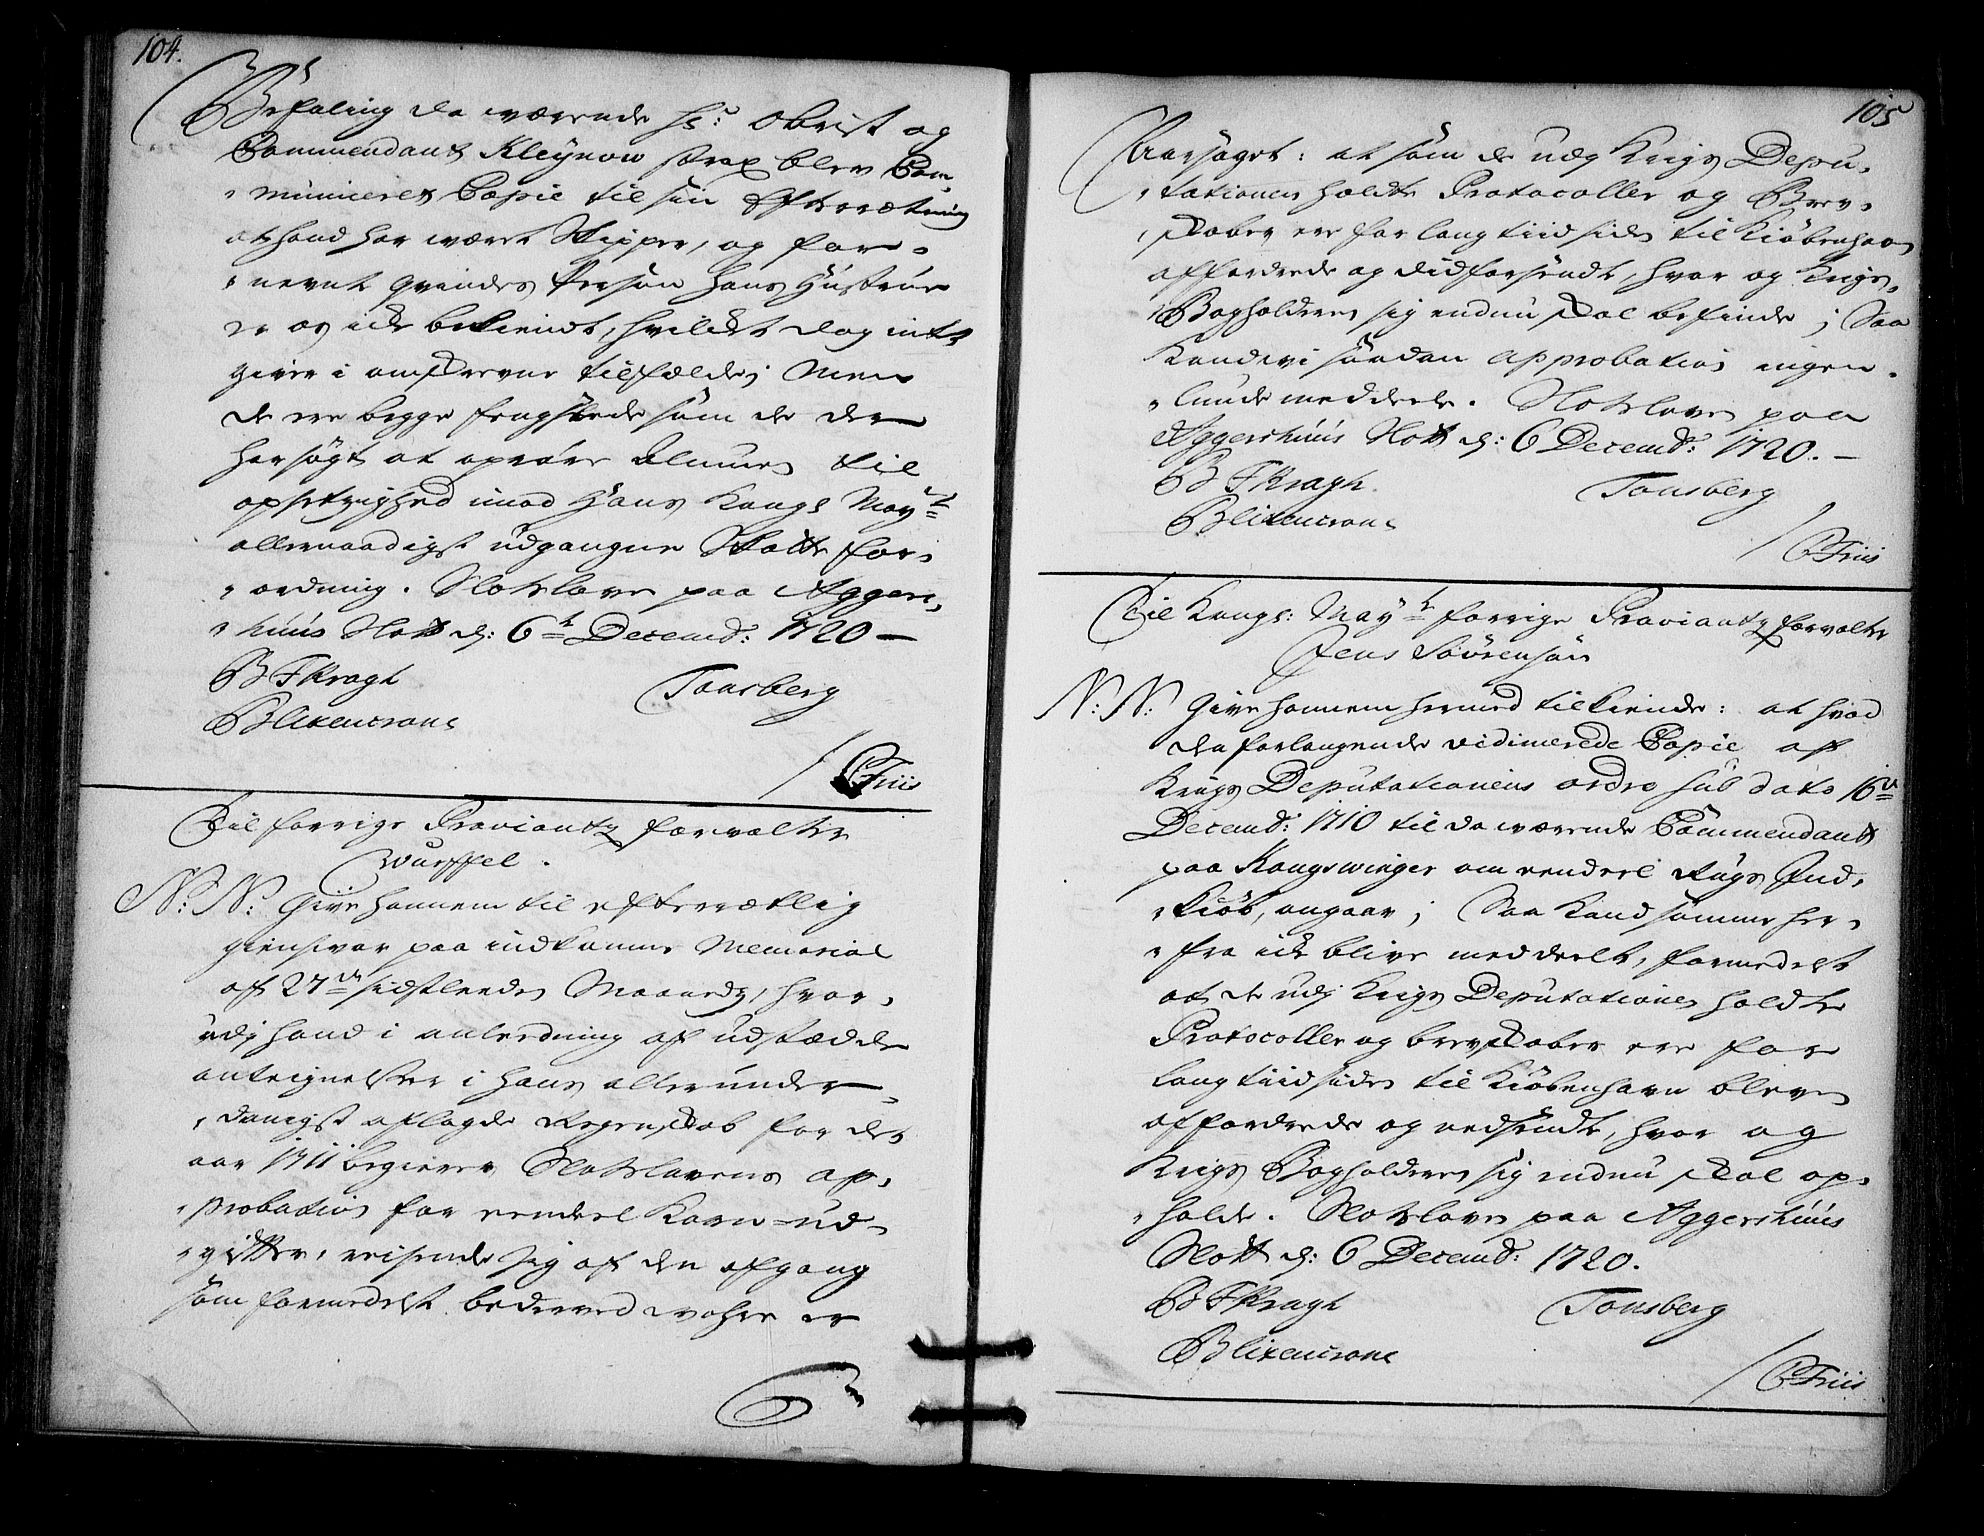 104.
Befaling da værende Hr: Obrist og
Commendant Kleÿnow strax blev Com-
municeret Copie til sin Efterretning
at hand har været Skipper, og for-
nevnt qvindes Person hans Hustrue
er os icke bekiendt, hvilcket dog intet
giver i omskrevne tilfælde; Men
de ere begge fengslede som de der
har søgt at opröre Almuen til
opsetzighed imod Hans Kongl Mayts
allernaadigst udgangne Skatte for-
ordning. Slotzloven paa Agger-
huus Slott d: 6te Decemb: 1720 —
B F Kragh Tonsberg
Blixencrone
/ C Friis
Til forrige Proviantz forvalter
Wurffel.
N: N: Give hannem til efterretlig
giensvar paa indkomne Memorial
af 27de sidstleedne Maanedz, hvor-
udj hand i anledning af udstædde
antegnelser i hans allerunder-
danigst aflagde Regenskab for det
aar 1711 begierer Slotzlovens ap-
probation for eendeel Korn-ud-
gifter, reisende sig af den afgang
som formedelst bederved wahre er
105
Aarsaget: at som de udj Krigs Depu-
tationen holdte Protocoller og Brev-
skaber ere for lang tiid siden til Kiöbenhavn
affordrede og did forsendt, hvor og Krigs-
Bogholderen sig endnu skal befinde; Saa
Kunde vi saadan approbation ingen-
lunde meddeele. Slotzloven paa
Aggershuus Slott d: 6 Decemb: 1720. —
B F Kragh. Tonsberg
Blixencrone
/ C Friis
Til Kongl: Mayts forrige Proviantz forvalter
Jens Sörensön
N: N: Give hannem hermed tilkiende: at hvad
den forlangende vidimerede Copie af
Krigs Deputationens ordre sub dato 16de
Decemb: 1710 til da værende Commendant
paa Kongswinger om eendeel Rugs Ind-
kiöb, angaar; Saa Kand samme her-
fra icke blive meddeelt, formedelst
at de udj Krigs Deputationen holdte
Protocoller og brevskaber ere for
lang tiid siden til Kiöbenhavn bleven
affordrede og nedsendt, hvor og
Krigs Bogholderen sig endnu skal op-
holde. Slotzloven paa Aggershuus
Slott d: 6 Decemb: 1720.
B F Kragh Tonsberg
Blixencrone
/ C Friis